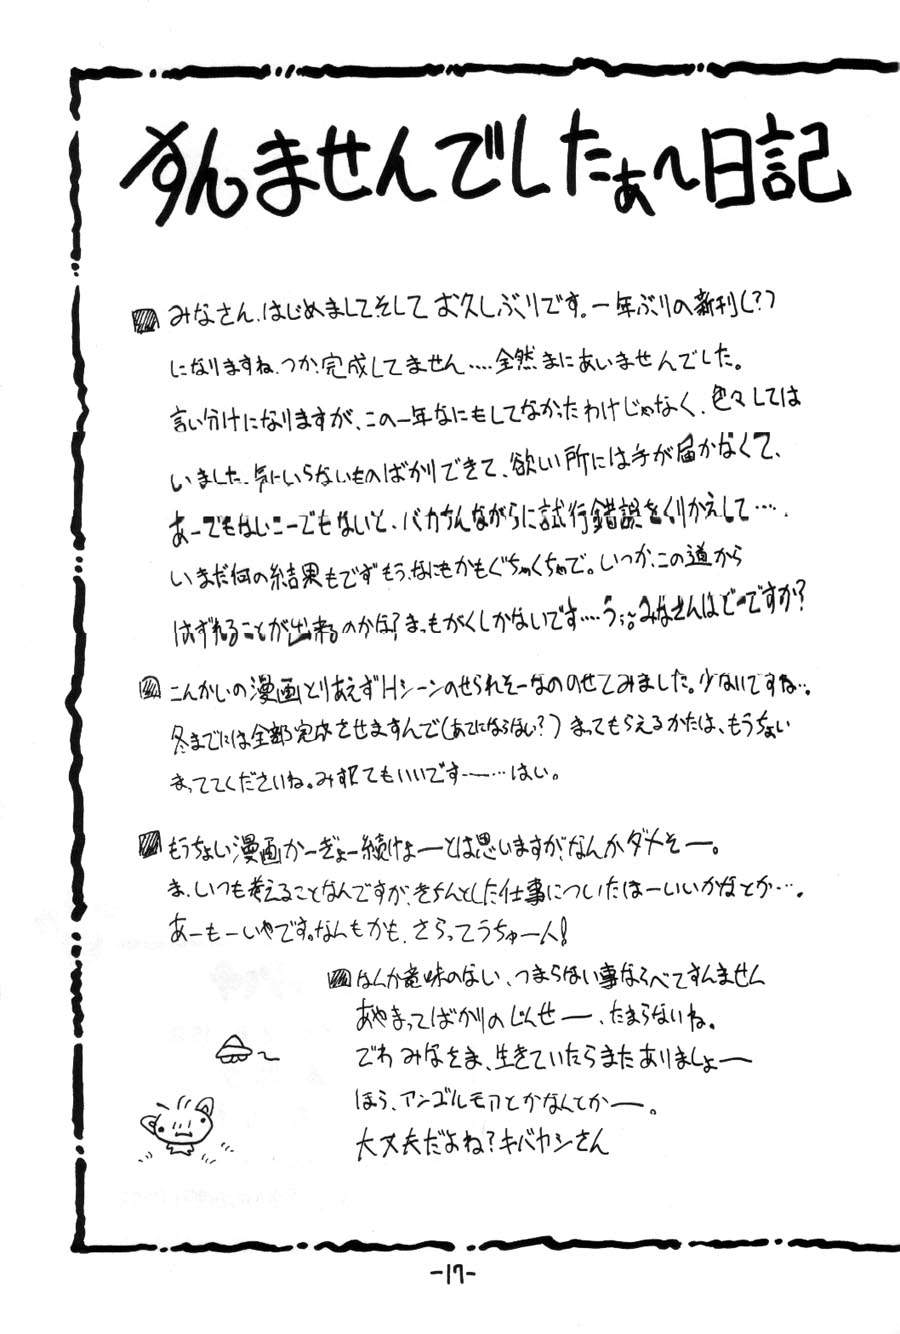 すんませんでしたぁ〜日記
みなさん、はじめましてそして お久しぶりです。一年ぶりの新刊(?)
になりますね、つか完成してません‥‥全然まにあいませんでした。
言い分けになりますが、この一年なにもしてなかったわけじゃなく、色々しては
いました、気にいらないものばかりできて、欲しい所には手が届かなくて、
あーでもないこーでもないと、バカちんながらに試行錯誤をくりかえして‥‥、
いまだ何の結果もでず もう、なにもかもぐちゃくちゃで。いつか、この道から
はずれることが出来るのかな? まっもがくしかないです‥‥う みなさんはどーですか?
こんかいの漫画とりあえずHシーンのせられそーなののせてみました。少ないですね‥。
冬までには全部完成させますんで(あてにならない?) まってもらえるかたは、もうちょい
まっててくださいね。み捨てもいいですー‥‥はい。
もうちょい漫画かーぎょー続けよーとは思いますが、なんかダメそー。
ま、いつも考えることなんですが、きちんとした仕事についたほーいいかなとか‥‥。
あーもーいやです。なんもかも、さらってうちゅー人!
なんか意味のない、つまらない事ならべてすんません
あやまってばかりのじんせー、たまらないね。
でわ みなさま、生きていたらまたありましょー
ほら、アンゴルモアとかなんとかー。
大丈夫だよね? キバヤシさん
-17-